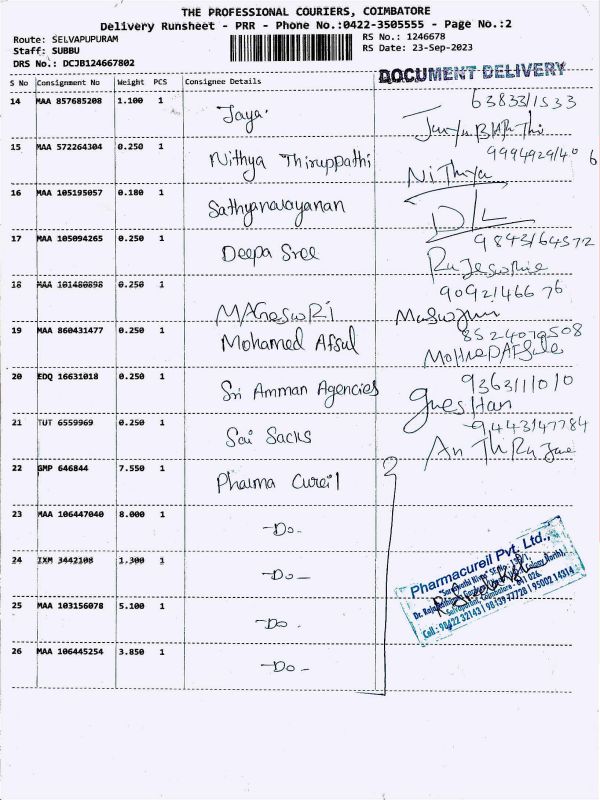 THE PROFESSIONAL COURIERS, COIMBATORE
Delivery Runsheet - PRR - Phone No.:0422-3505555 - Page No.:2
Route: SELVAPUPURAM
RS No.: 1246678
Staff: SUBBU
RS Date: 23-Sep-2023
DRS No.: DCJB124667802
DOCUMENT DELIVERY
S No Consignment No Weight PCS Consignee Details
14 MAA 857685208 1.100 1 Jaya.
63833/1533
15 MAA 572264304 0.250 1 Nithya Thiruppathi
9994929140 6
Nithya
16 MAA 105195057 0.180 1 Sathyanarayanan
D/L
17 MAA 105094265 0.250 1 Deepa Sree
9843164372
18 MAA 101480898 0.250 1 MAHeswRi
9092146676
19 MAA 860431477 0.250 1 Mohamed Afsul
8524079508
20 EDQ 16631018 0.250 1 Sri Amman Agencies
9363111010
21 TUT 6559969 0.250 1 Sai Sacks
9443147784
22 GMP 646844 7.550 1 Pharma Cureil
23 MAA 106447040 8.000 1 -Do-
24 IXM 3442108 1.300 1 -Do-
25 MAA 103156078 5.100 1 -Do-
26 MAA 106445254 3.850 1 -Do-
Pharmacureil Pvt. Ltd.,
Call : 98422 32143 | 98139 77728 | 95002 14314